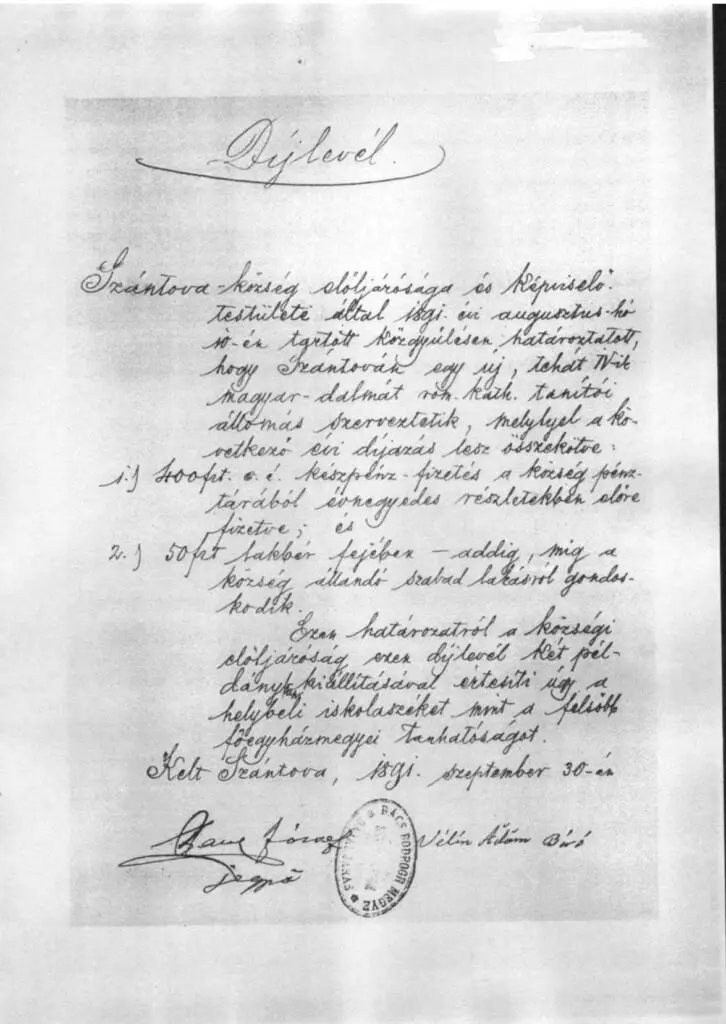 Díjlevél.
Szántova-község elöljárósága és Képviselő-
testülete által 1891. évi augusztus-hó
10-én tartott közgyülésen határoztatott,
hogy Szántován egy új, tehát IV-ik
magyar-dalmát róm. kath. tanítói
állomás szerveztetik, melylyel a kö-
vetkező évi díjazás lesz összekötve:
1.) 400 frt. o. é. készpénz-fizetés a község pénz-
tárából évnegyedes részletekben előre
fizetve; és
2.) 50 frt lakbér fejében – addig, mig a
község állandó szabad lakásról gondos-
kodik.
Ezen határozatról a községi
elöljáróság ezen díjlevél két pél-
dány kiállitásával értesiti úgy a
helybeli iskolaszéket mint a felsőbb
főegyházmegyei tanhatóságot.
Kelt Szántova, 1891. szeptember 30-án
József
jegyző
Vélin Ádám Biró
BÁCS BODROGH MEGYE